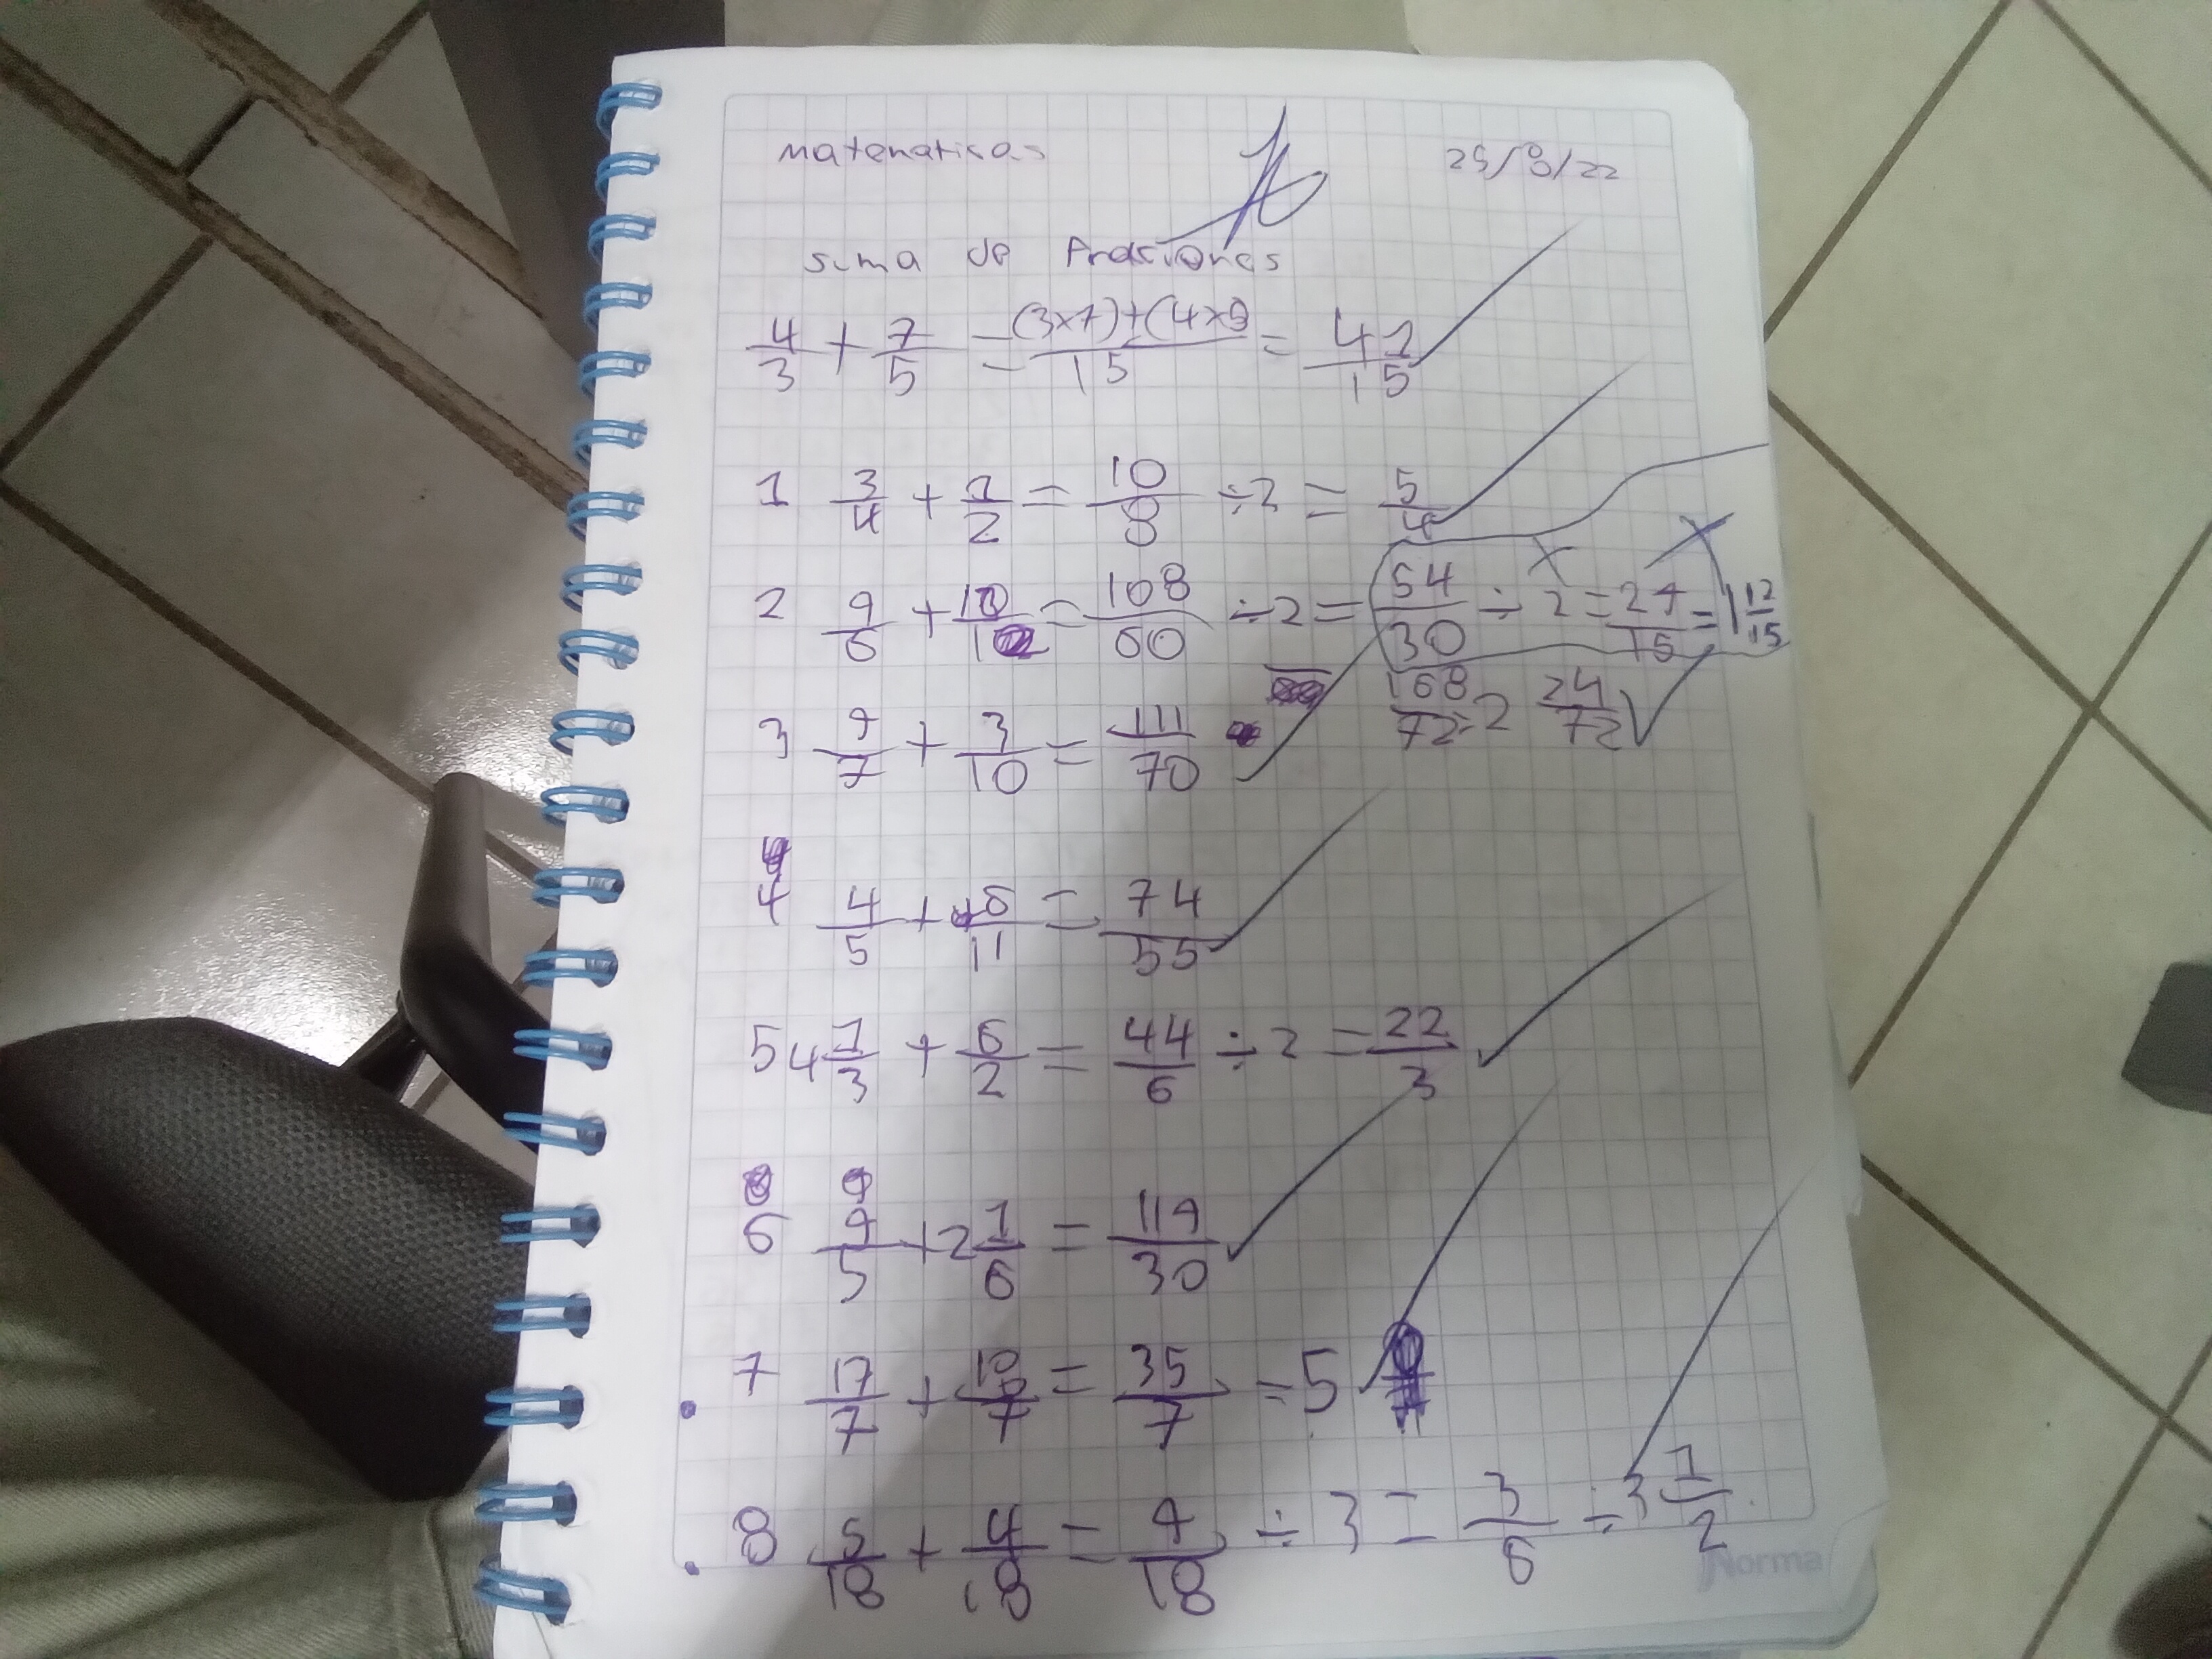 matematicas 25/8/22
suma de fracciones
4/3 + 7/5 = (3x7)+(4x5/15 = 41/15
1 3/4 + 1/2 = 10/8 ÷2 = 5/4
2 9/6 + 10/12 = 108/60 ÷2 = 54/30 ÷ 2 = 27/15 = 1 12/15
168/72 ÷2 24/72
3 9/7 + 3/10 = 111/70
4 4/5 + 6/11 = 74/55
5 4 1/3 + 6/2 = 44/6 ÷ 2 = 22/3
6 9/5 + 2 1/6 = 119/30
7 17/7 + 18/7 = 35/7 = 5
8 5/18 + 4/18 = 9/18 ÷ 3 = 3/6 ÷3 1/2
Norma